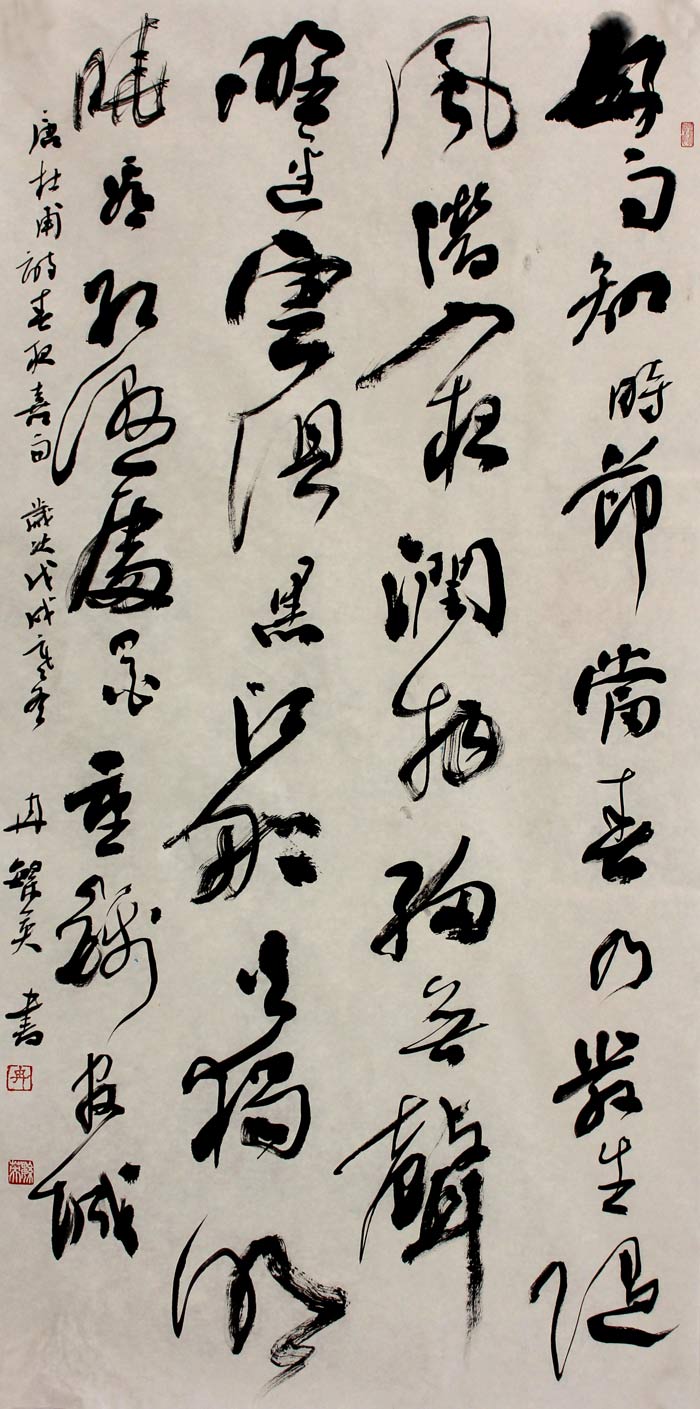 好雨知時節當春乃發生隨
風潛入夜潤物細無聲
野徑雲俱黑江船火獨明
曉看紅濕處花重錦官城
唐杜甫詩春夜喜雨 歲次戊戌寒冬 冉繁英 書
冉